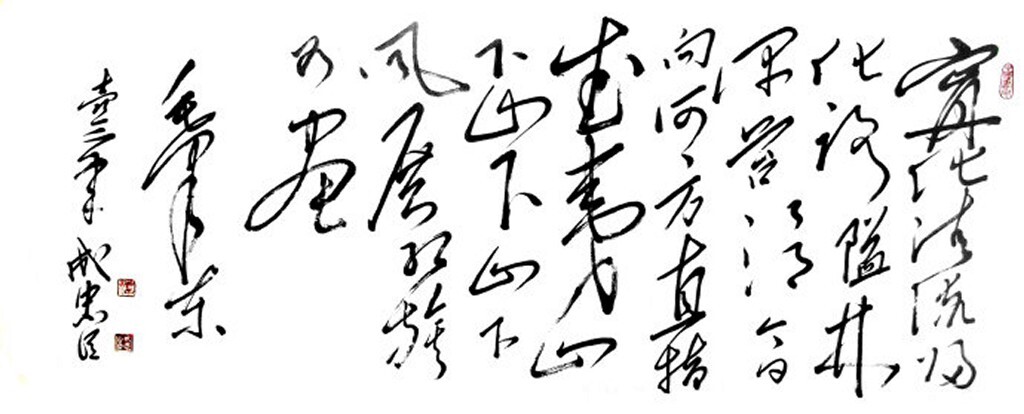 寧化清流归
化路隘林
深苔滑今日
向何方直指
武夷山
下山下山下
风展红旗
如画
毛泽东
壹二年 成忠臣